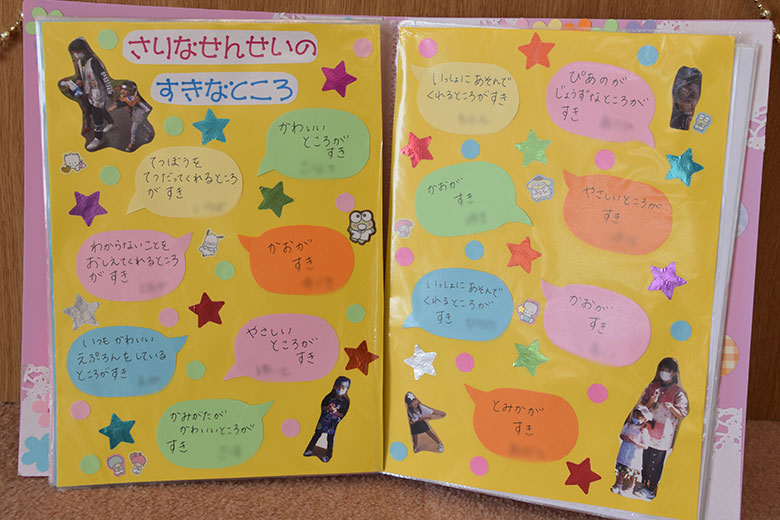 さりなせんせいの
すきなところ
かわいい
ところが
すき
てつぼうを
てつだってくれるところ
がすき
わからないことを
おしえてくれるところ
がすき
かおが
すき
いつもかわいい
えぷろんをしている
ところがすき
やさしい
ところが
すき
かみがたが
かわいいところが
すき
いっしょにあそんで
くれるところがすき
ぴあのが
じょうずなところが
すき
かおが
すき
やさしいところが
すき
いっしょにあそんで
くれるところが
すき
かおが
すき
とみかが
すき